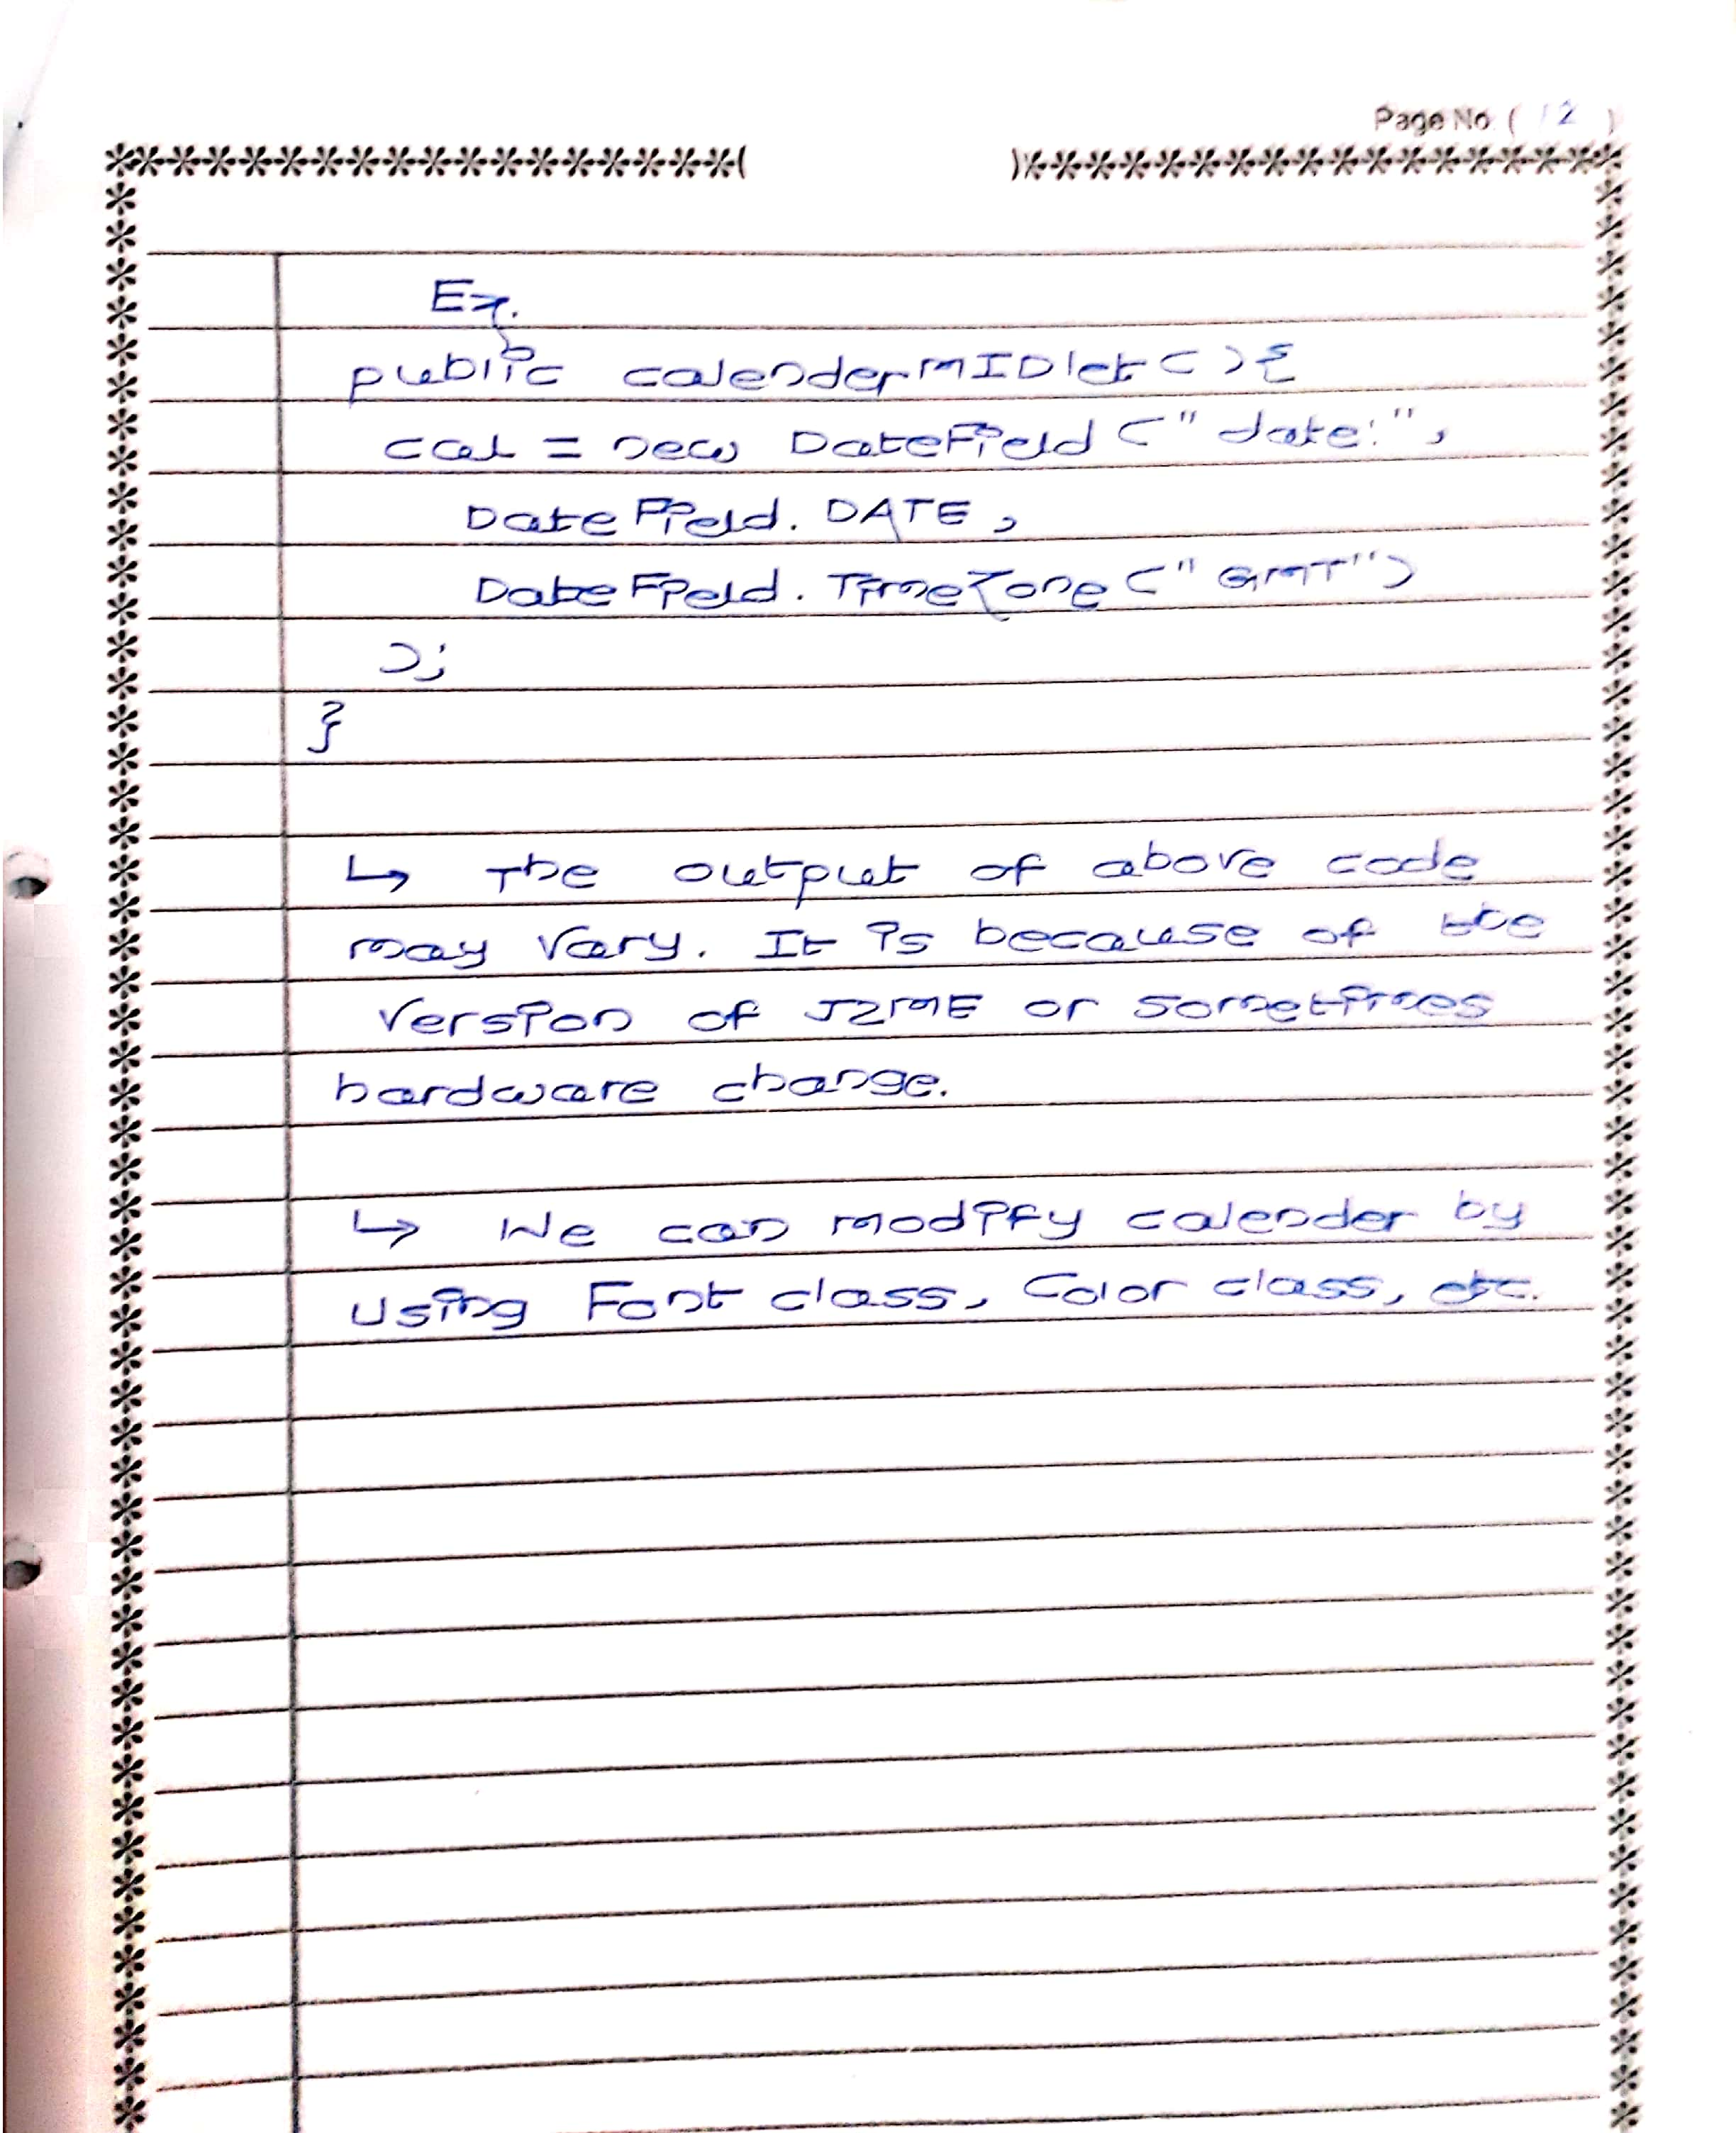 Page No. ( 12 )
Ex.
public calenderMIDlet ( ) {
cal = new DateField ("date:",
DateField. DATE,
DateField. TimeZone ("GMT")
);
}
↳ The output of above code
may vary. It is because of the
version of J2ME or sometimes
hardware change.
↳ We can modify calender by
using Font class, Color class, etc.